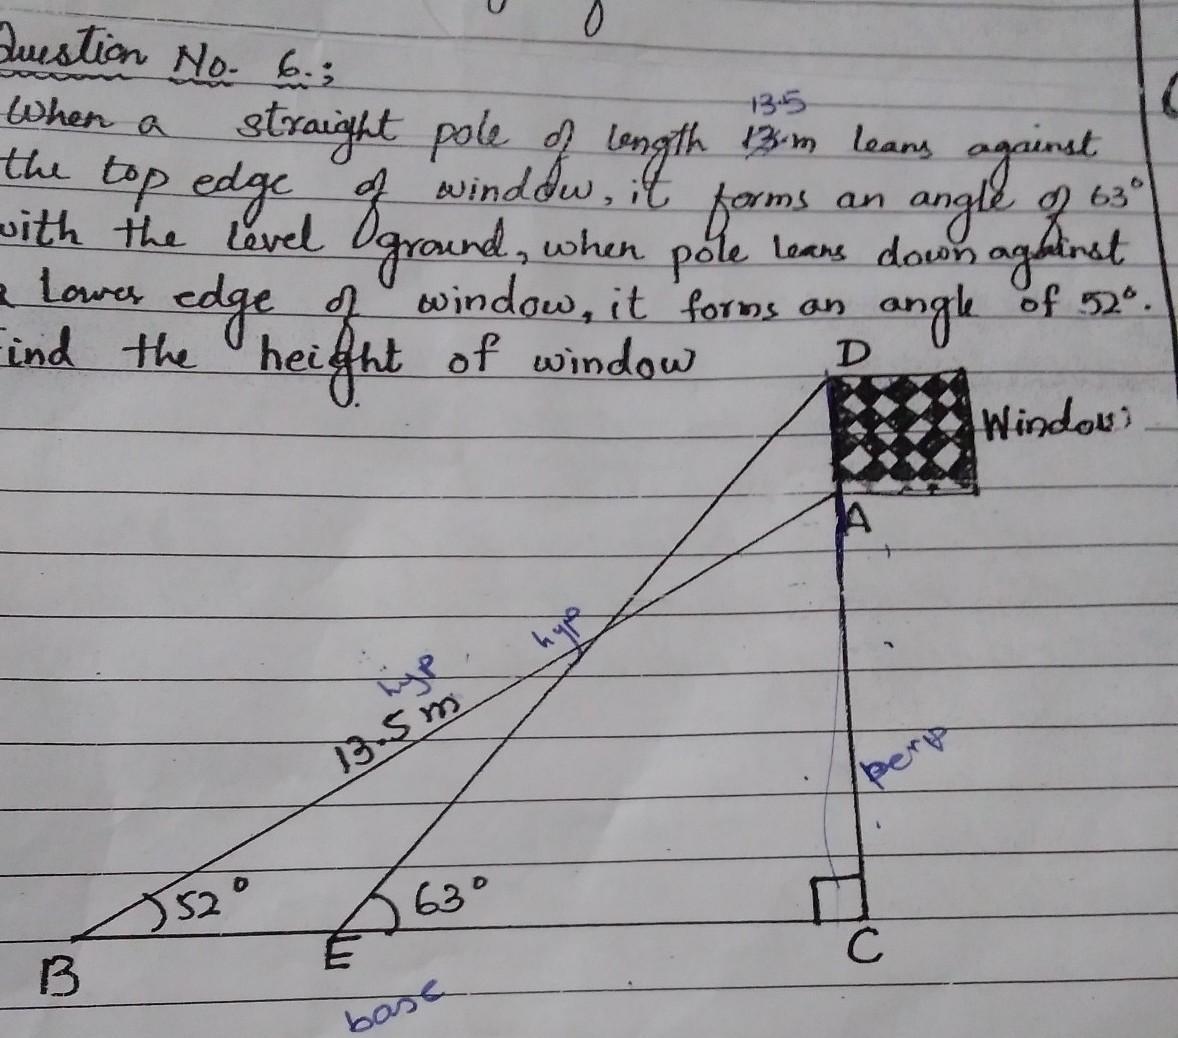 Question No. 6.;
13.5
When a straight pole of length 13.m leans against
the top edge of window, it forms an angle of 63°
with the level ground, when pole leans down against
lower edge of window, it forms an angle of 52°.
Find the height of window
D
Window;
A
hyp
hyp
13.5 m
perp
52°
63°
B
E
C
base